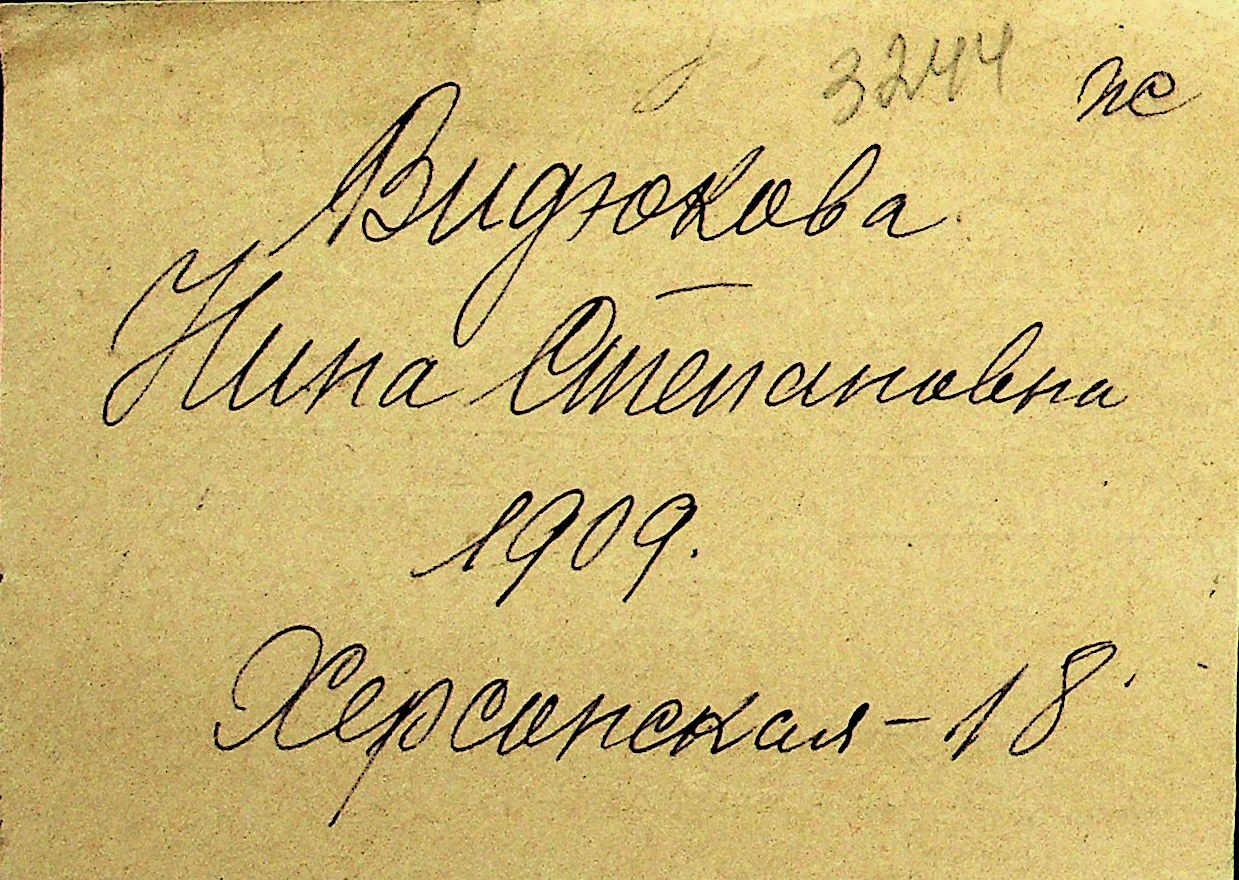 3244 пс
Видюкова
Нина Степановна
1909.
Херсонская - 18